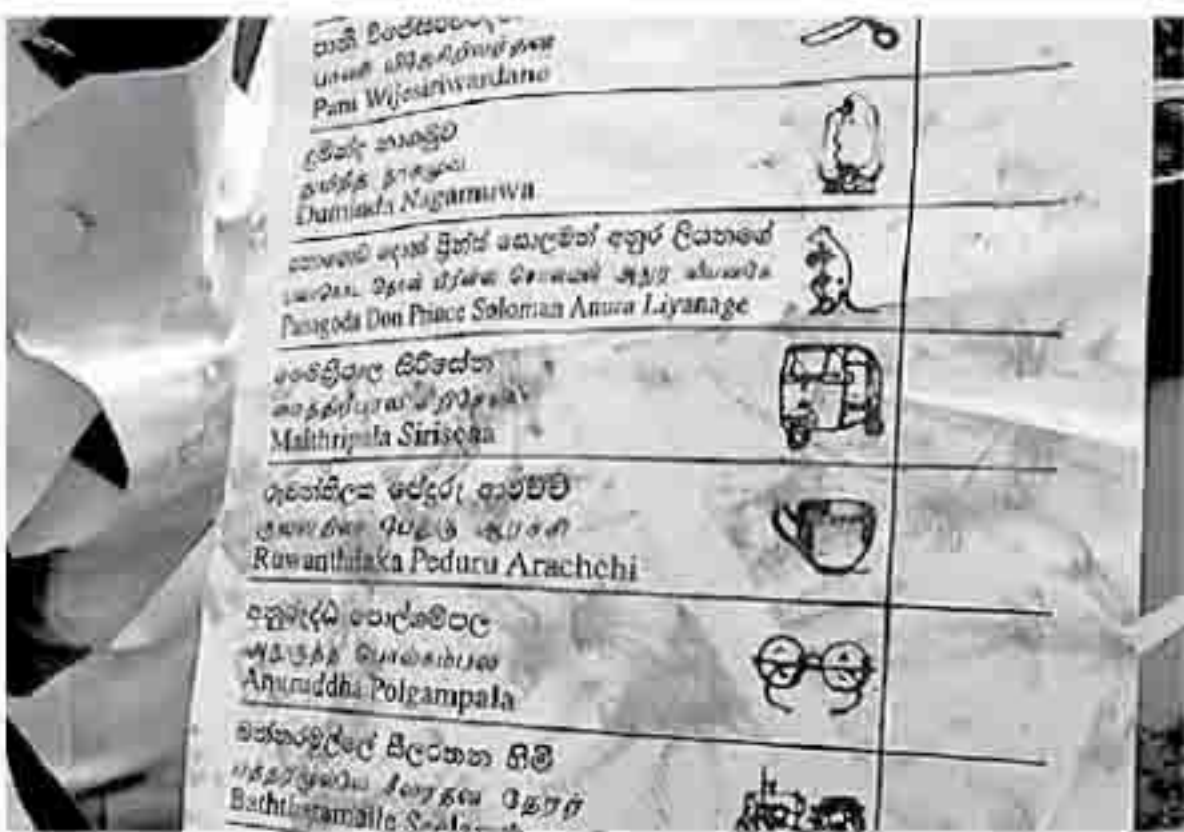 පානි විජේසිරිවර්ධන
Pani Wijesiriwardane
දුමින්ද නාගමුව
துமிந்த நாகமுவ
Duminda Nagamuwa
පනාගොඩ දොන් ප්‍රින්ස් සොලමන් අනුර ලියනගේ
பனாகொட தொன் பிரின்ஸ் சொலமன் அநுர லியனகே
Panagoda Don Prince Soloman Anura Liyanage
මෛත්‍රීපාල සිරිසේන
மைத்திரிபால சிறிசேன
Maithripala Sirisena
රුවන්තිලක පේදුරු ආරච්චි
ருவன்திலக பேதுரு ஆரச்சி
Ruwanthilaka Peduru Arachchi
අනුරුද්ධ පොල්ගම්පල
அநுருத்த பொல்கம்பல
Anuruddha Polgampala
බත්තරමුල්ලේ සීලරතන හිමි
பத்தரமுல்லே சீலரதன தேரர்
Baththaramulle